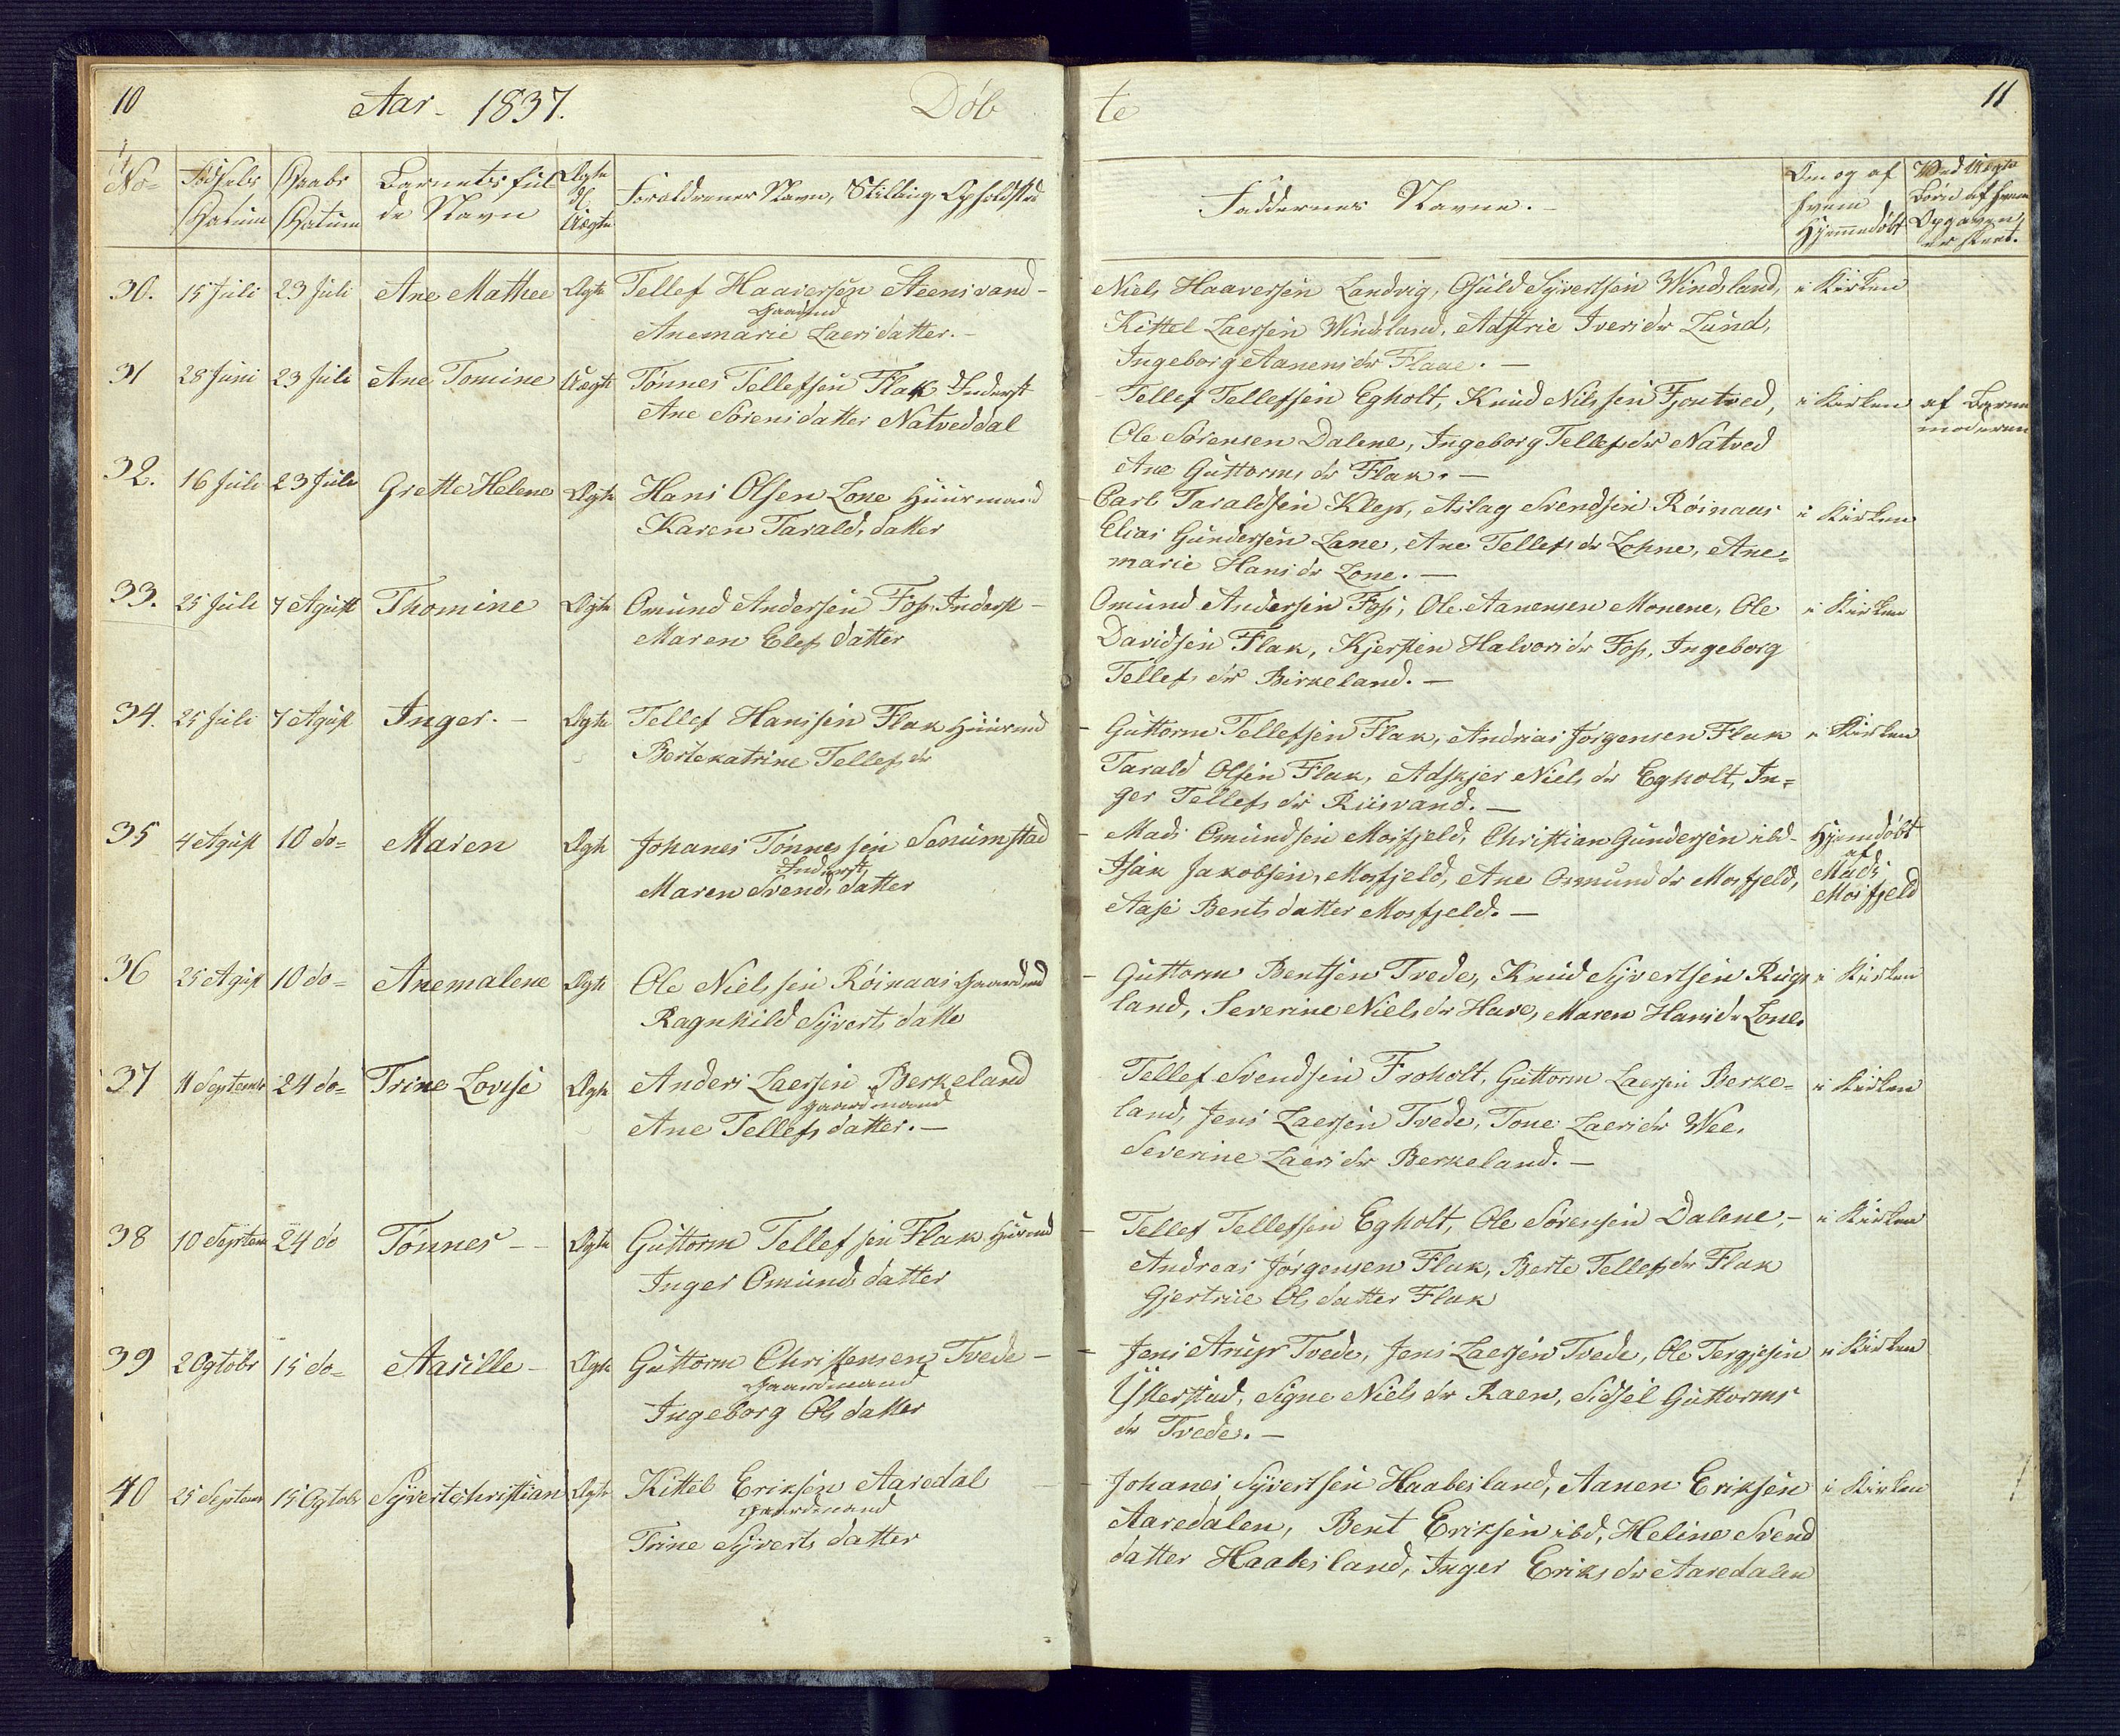 10 Aar 1837. Døb
te 11
No Fødsels Datum Daabs Datum Barnets ful-
de Navn Ægte el. Uægte Forældrenes Navn, Stilling, Opholdsted
Faddernes Navne. Om og af hvem Hjemmedøbt Ved Uægte Børn af hvem Opgaven er skeet.
30. 15 Juli 23 Juli Ane Mathee Ægte Tellef Haaversen Steensvand
Gaardmd
Anemarie Laersdatter.
Niels Haaversen Landvig, Osuld Syvertsen Windsland, i Kirken
Kittel Laersen Windsland, Adstrie Ivers dr Lund,
Ingeborg Aanens dr Flaae.
31 28 Juni 23 Juli Ane Tomine Uægte Tønnes Tellefsen Flak Inderst
Ane Sørensdatter Natveddal
Tellef Tellefsen Egholt, Knud Nilssen Fjontved, i Kirken af Barne
moderen
Ole Sørensen Dalene, Ingeborg Tellefs dr Natved
Ane Guttorms dr Flak.
32. 16 Juli 23 Juli Grette Helene Ægte Hans Olsen Lone Huusmand
Karen Taraldsdatter
Carl Taraldsen Klep, Aslag Svendsen Røinaas i Kirken
Elias Gundersen Lane, Ane Tellefs dr Lohne, Ane-
marie Hans dr Lone.
33. 25 Juli 7 Agust Thomine Ægte Omund Andersen Fos, Inderst
Maren Elefsdatter
Omund Andersen Fos, Ole Aanensen Monene, Ole i Kirken
Davidsen Flak, Kjersten Halvors dr Fos, Ingeborg
Tellefs dr Birkeland.
34. 25 Juli 7 Agust Inger. Ægte Tellef Hanssen Flak Huusmd
Bertekatrine Tellefs dr
Guttorm Tellefsen Flak, Andrias Jørgensen Flak i Kirken
Tarald Olsen Flak, Adskjer Niels dr Egholt, In-
ger Tellefs dr Riisvand.
35 4 Agust 10 do Maren Ægte Johanes Tønnessen Senumstad
Inderst
Maren Svendsdatter
Mads Omundsen Mosfjeld, Christian Gundersen ibd. Hjemdøbt
af
Mads
Mosfjeld
Isak Jakobsen, Mosfjeld, Ane Osmund dr Mosfjeld,
Aase Bentsdatter Mosfjeld.
36 25 Agust 10 do Anemalene Ægte Ole Nielssen Røinaas Gaardmd
Ragnhild Syvertsdatte
Guttorm Bentsen Tvede, Knud Syvertsen Rugs i Kirken
land, Severine Niels dr Have, Maren Hans dr Lone.
37 11 September 24 do Trine Lovise Ægte Anders Laersen Berkeland
Gaardmand
Ane Tellefsdatter.
Tellef Svendsen Froholt, Guttorm Laersen Berke- i Kirken
land, Jens Laersen Tvede, Tone Laers dr Wee,
Severine Laers dr Berkeland.
38 10 Septem 24 do Tønnes Ægte Guttorm Tellefsen Flak Husmd
Inger Omundsdatter
Tellef Tellefsen Egholt, Ole Sørensen Dalene, i Kirken
Andreas Jørgensen Flak, Berte Tellefs dr Flak
Gjertrue Olsdatter Flak
39 2 Ogtobr 15 do Aasille Ægte Guttorm Christensen Tvede
Gaardmand
Ingeborg Olsdatter
Jens Tvede, Jens Laersen Tvede, Ole Tergjesen i Kirken
Ytterstad, Signe Niels dr Raen, Sidsel Guttorms
dr Tvede.
40 25 Septem 15 Ogtobr Syvertchristian Ægte Kittel Eriksen Aaredal
Gaardmand
Trine Syvertsdatter
Johanes Syvertsen Haabesland, Aanen Eriksen i Kirken
Aaredalen, Bent Eriksen ibd, Heline Svend
datter Haabesland, Inger Eriks dr Aaredalen